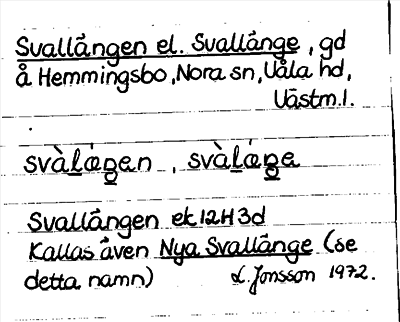 Svallången el. Svallånge, gd
å Hemmingsbo, Nora sn, Våla hd,
Västm. l.
svàlángen, svàlánge
Svallången ek 12H 3d
Kallas även Nya Svallånge (se
detta namn) L. Jonsson 1972.